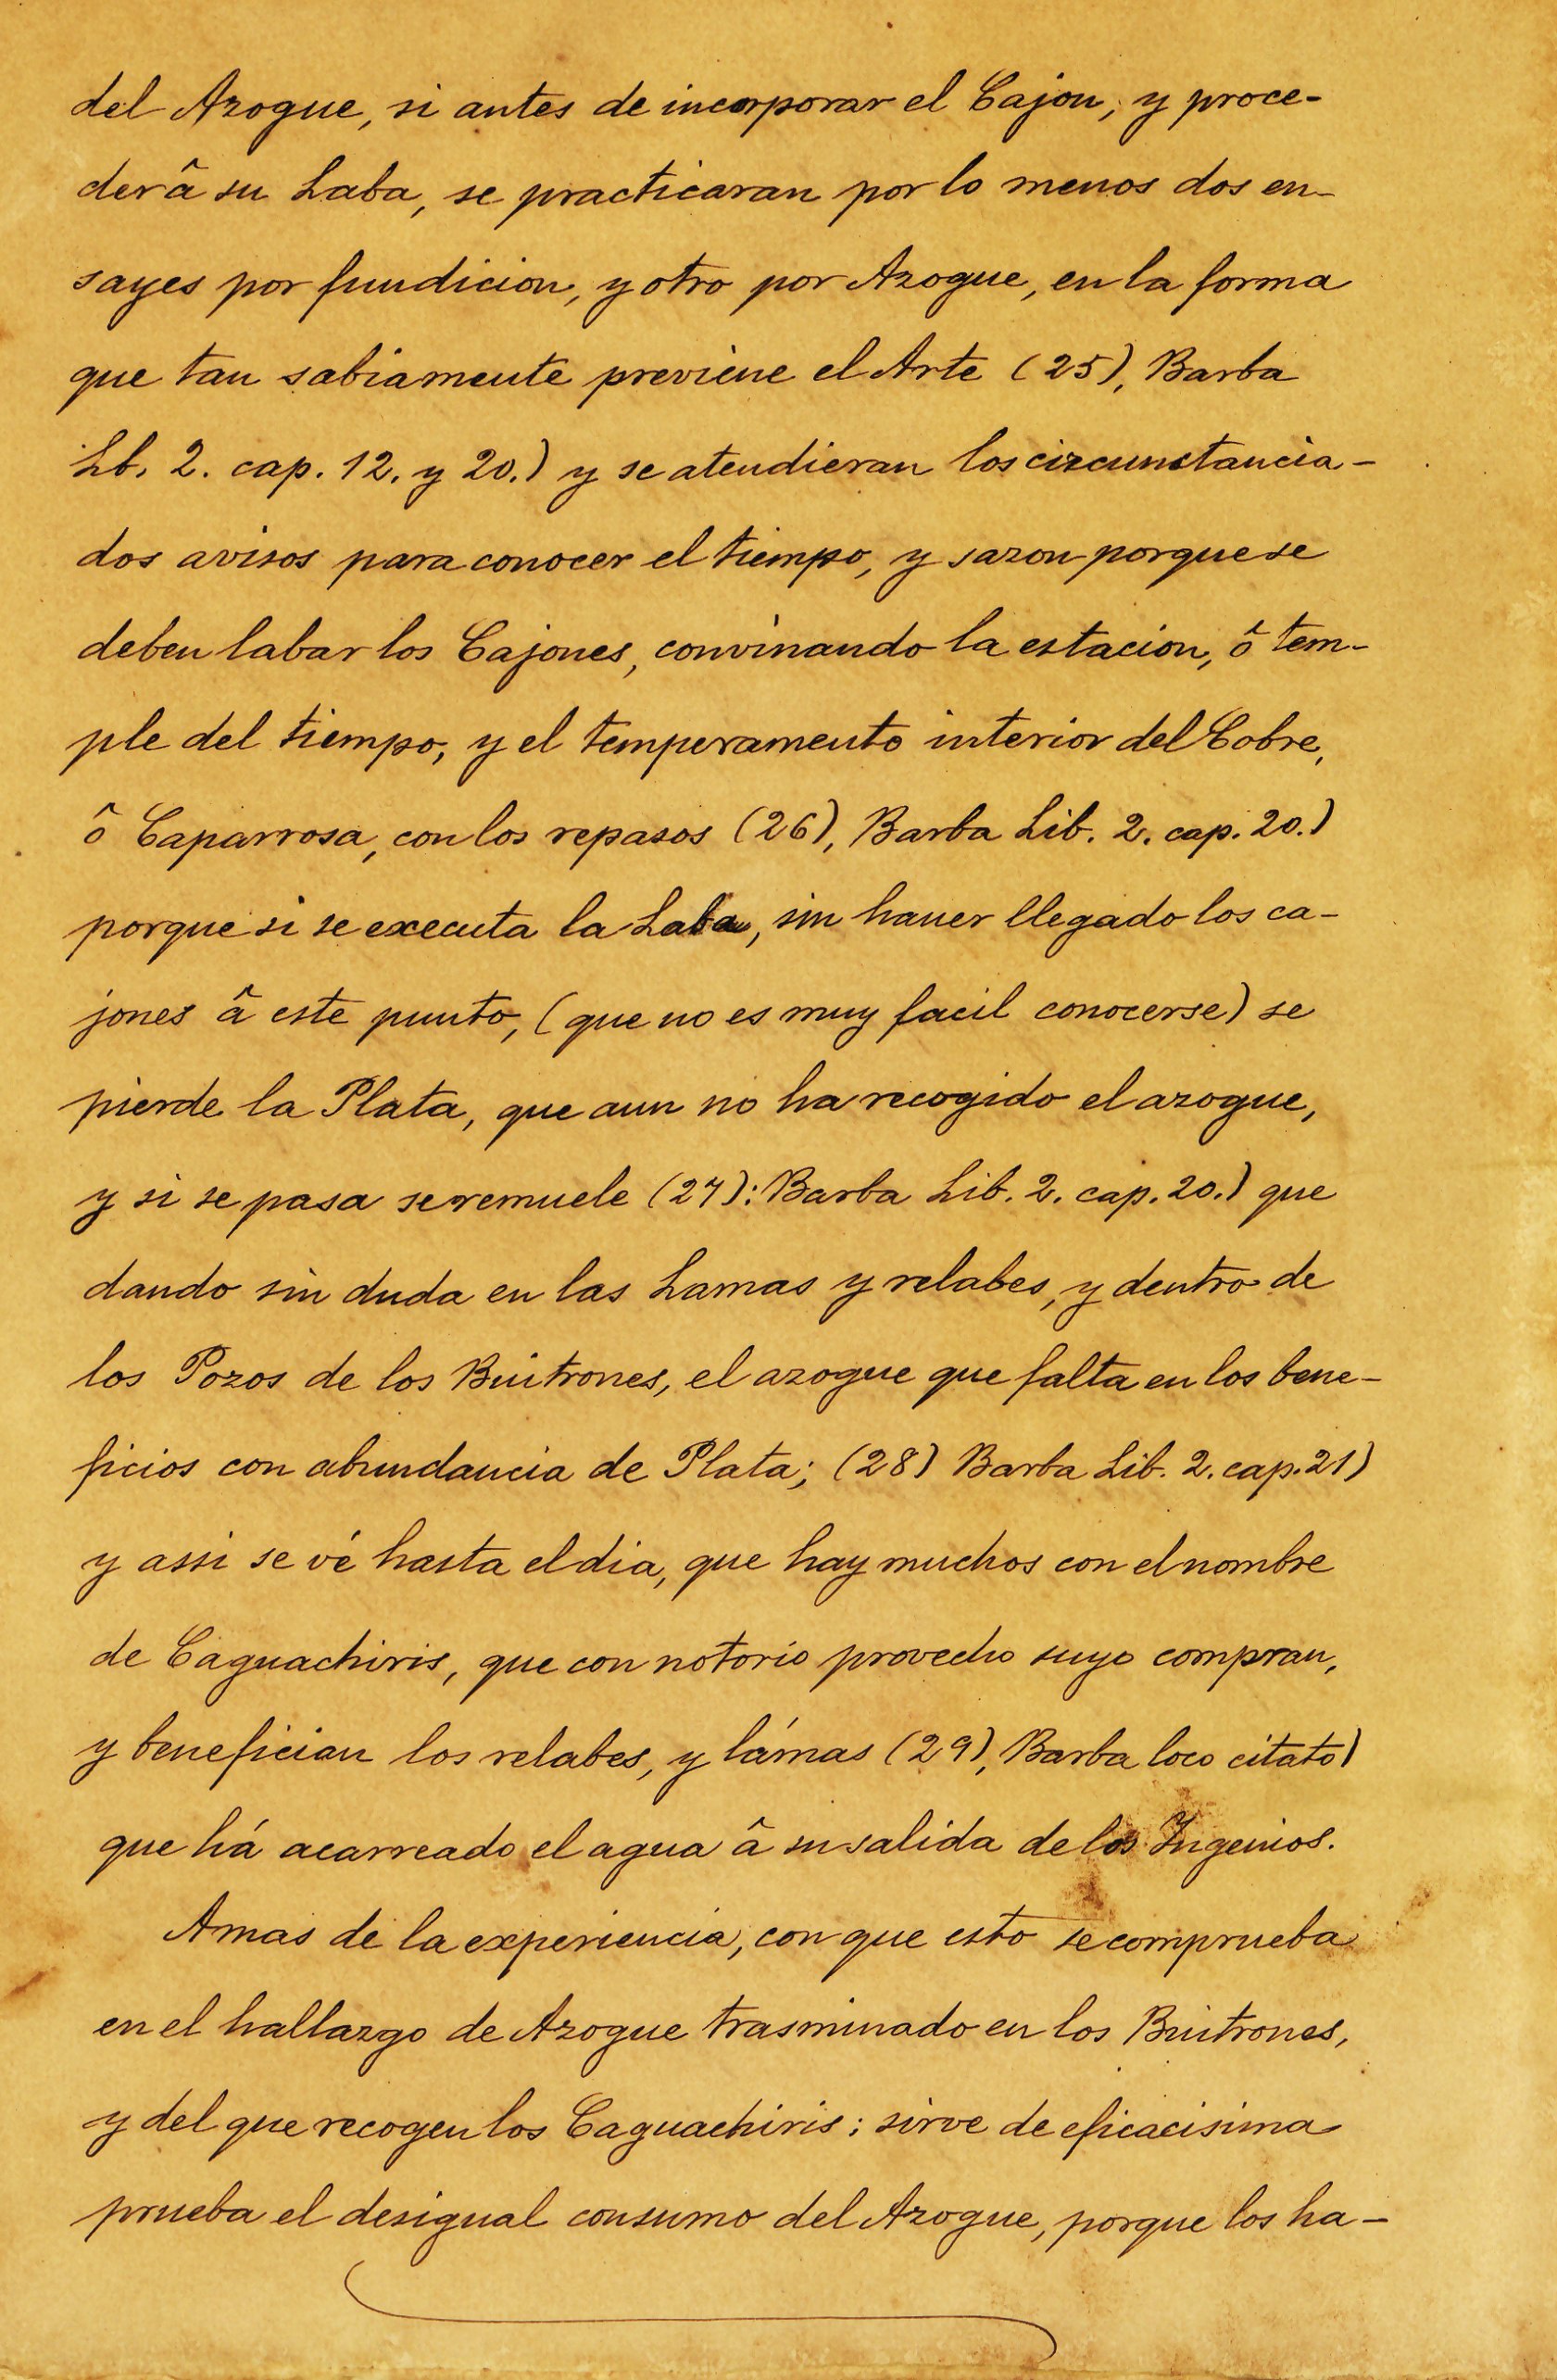 del Azogue, si antes de incorporar el Cajon, y proce-
der â su Laba, se practicaran por lo menos dos en-
sayes por fundicion, y otro por Azogue, en la forma
que tan sabiamente previene el Arte (25), Barba
Lb. 2. cap. 12. y 20.) y se atendieran los circunstancia-
dos avisos para conocer el tiempo, y sazon porque se
deben labar los Cajones, convinando la estacion, ô tem-
ple del tiempo, y el temperamento interior del Cobre,
ô Caparrosa, con los repasos (26), Barba Lib. 2. cap. 20.)
porque si se executa la Laba, sin hauer llegado los ca-
jones â este punto, (que no es muy facil conocerse) se
pierde la Plata, que aun no ha recogido el azogue,
y si se pasa se remuele (27): Barba Lib. 2. cap. 20.) que
dando sin duda en las Lamas y relabes, y dentro de
los Pozos de los Buitrones, el azogue que falta en los bene-
ficios con abundancia de Plata; (28) Barba Lib. 2. cap. 21)
y assi se vé hasta el dia, que hay muchos con el nombre
de Caguachiris, que con notorio provecho suyo compran,
y benefician los relabes, y lámas (29), Barba loco citato)
que há acarreado el agua â su salida de los Ingenios.
Amas de la experiencia, con que esto se comprueba
en el hallazgo de Azogue trasminado en los Buitrones,
y del que recogen los Caguachiris; sirve de eficacisima
prueba el desigual consumo del Azogue, porque los ha-